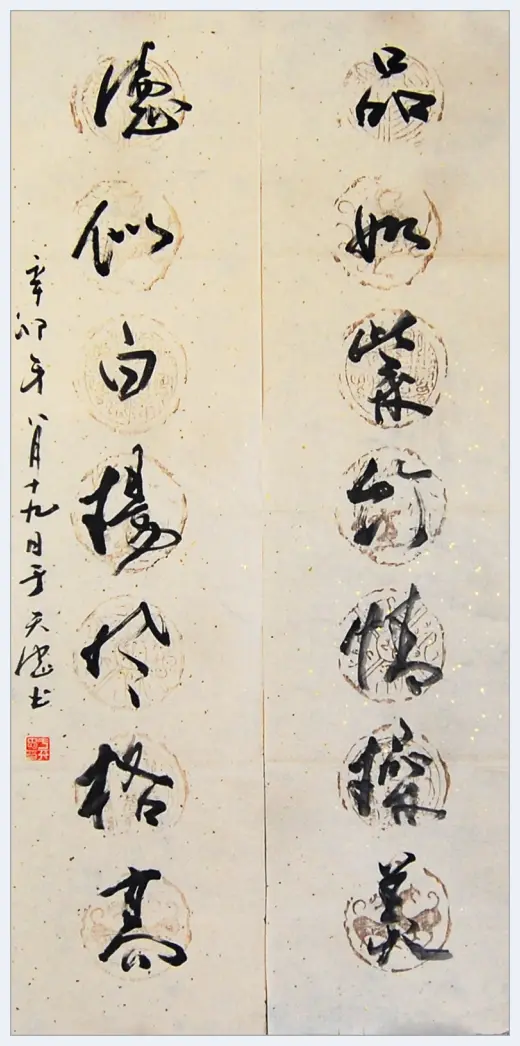 品如紫竹情操美
德似白楊风格高
辛卯年八月十九日于天德书